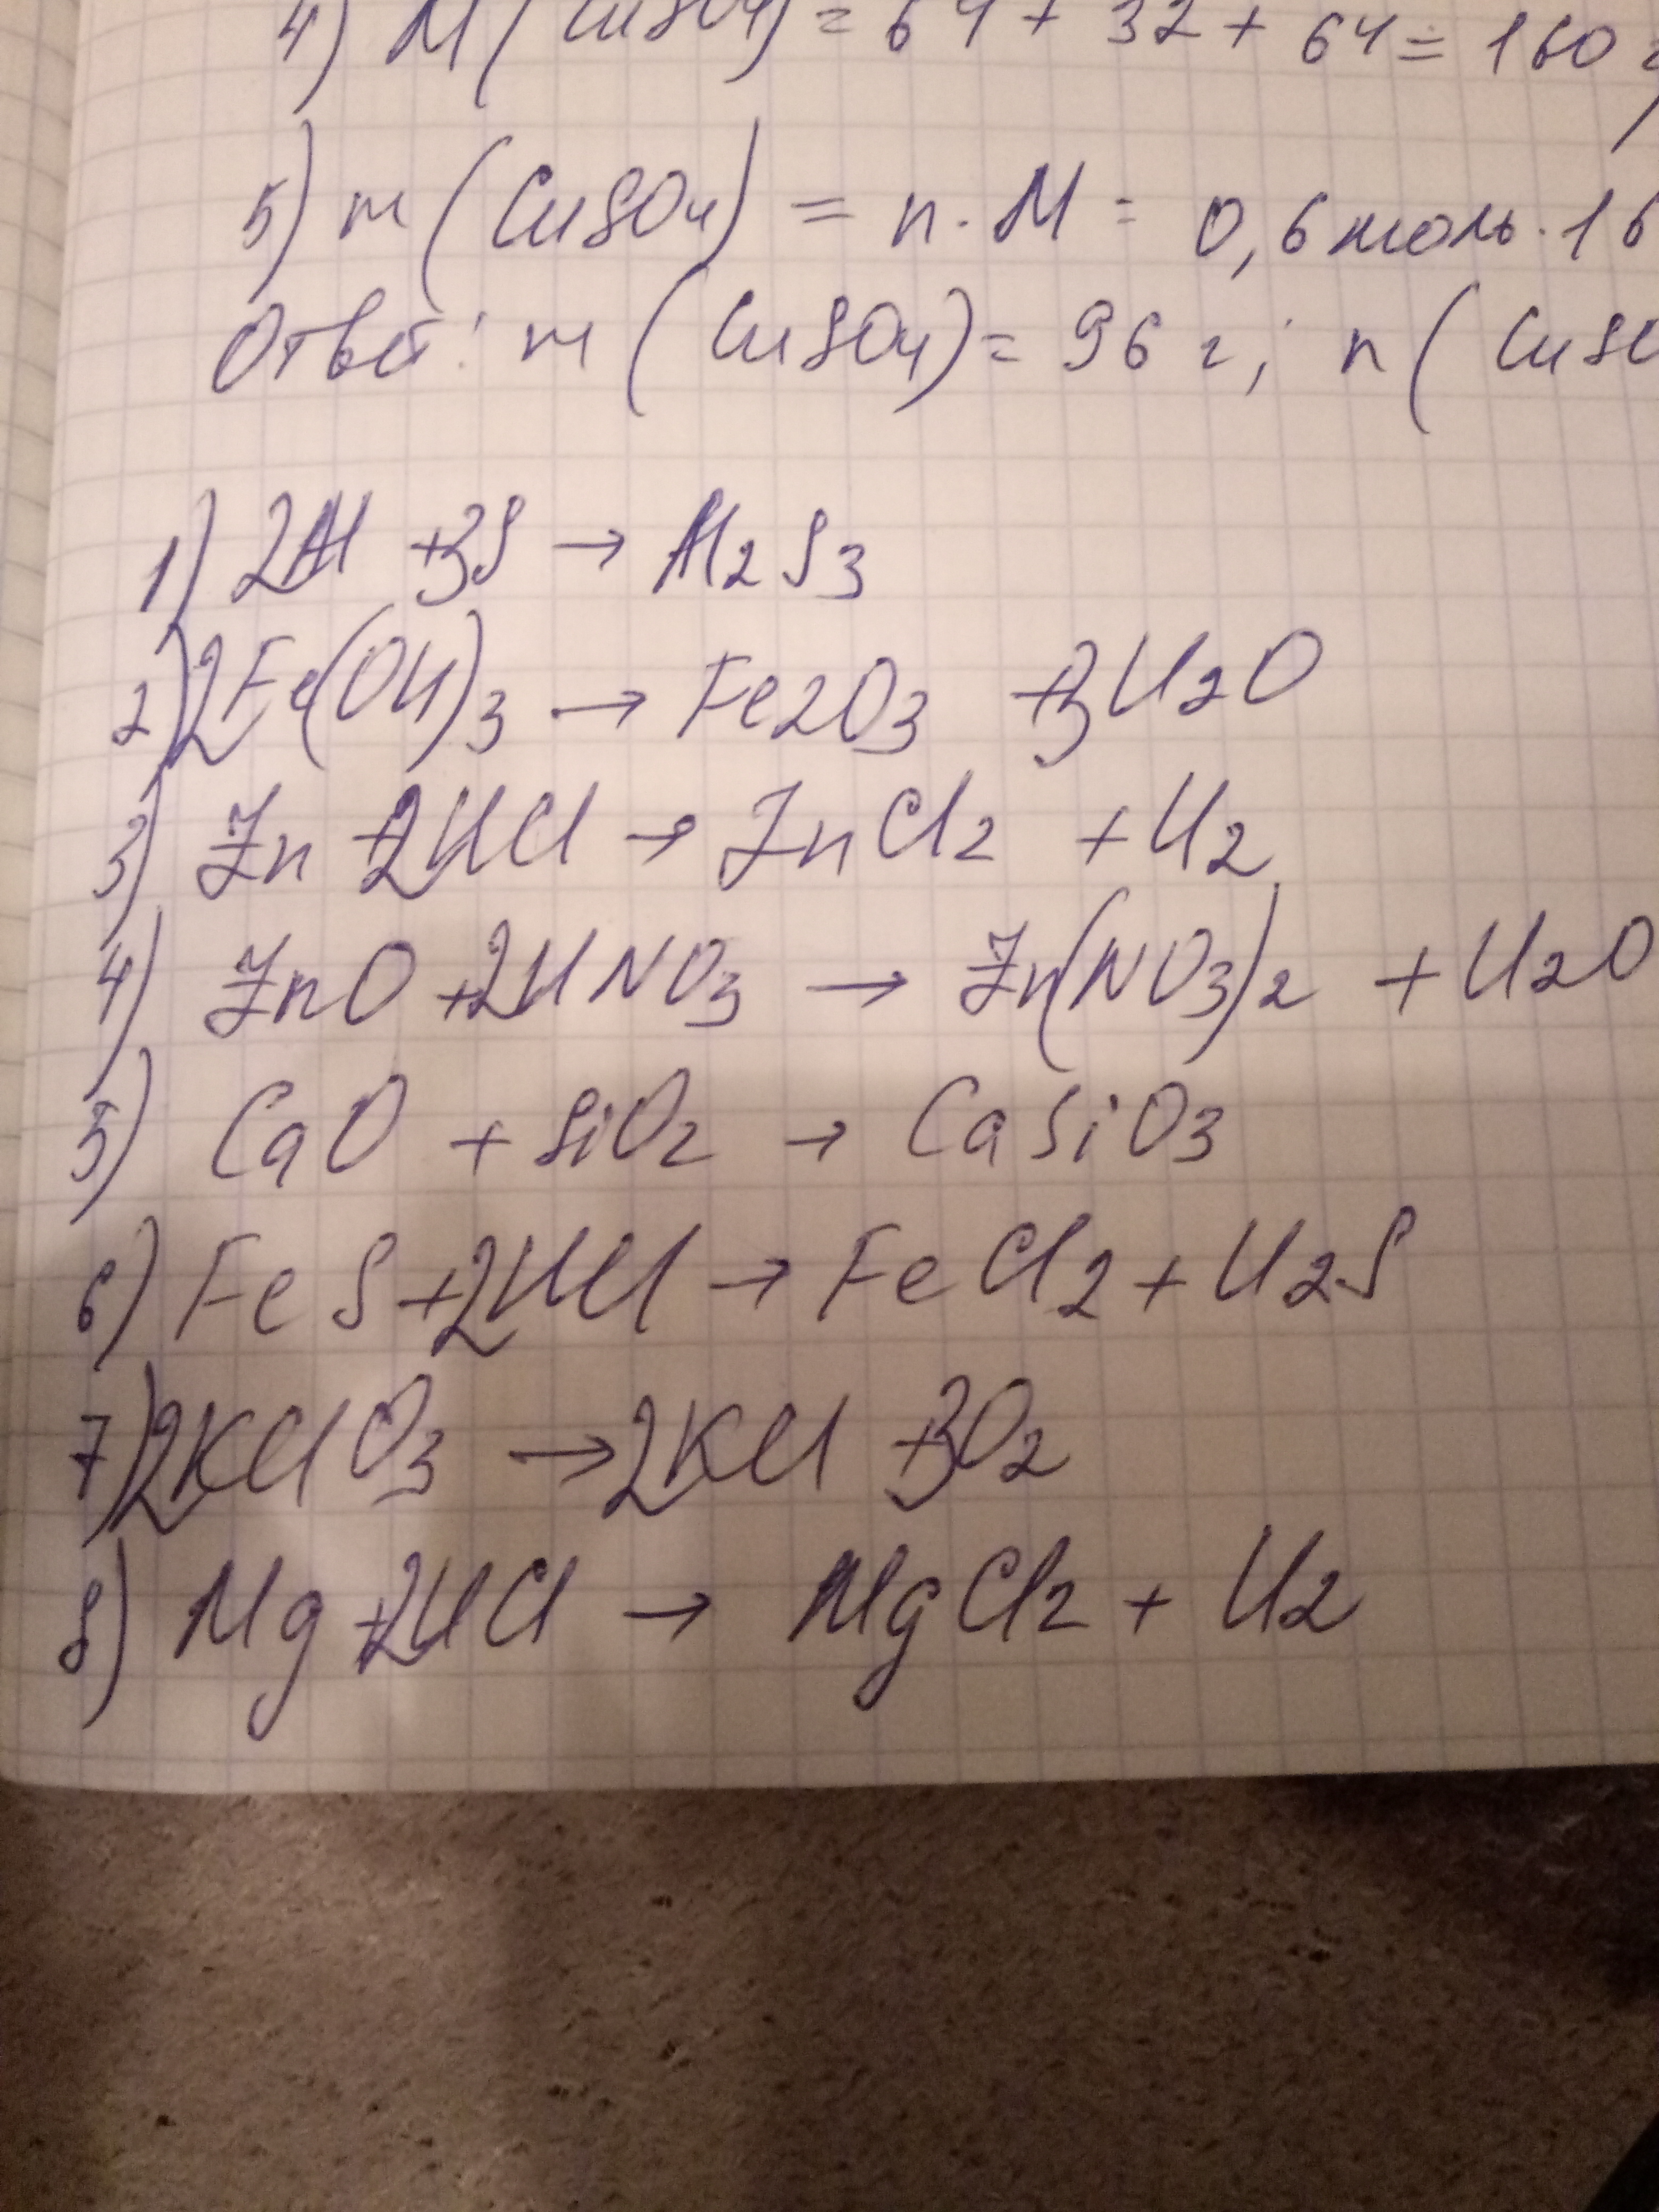 4) M(CuSO4) = 64 + 32 + 64 = 160 г
5) m(CuSO4) = n · M = 0,6 моль · 16
Ответ: m(CuSO4) = 96 г; n(CuSO
1) 2Al + 3S → Al2S3
2) 2Fe(OH)3 → Fe2O3 + 3H2O
3) Zn + 2HCl → ZnCl2 + H2
4) ZnO + 2HNO3 → Zn(NO3)2 + H2O
5) CaO + SiO2 → CaSiO3
6) FeS + 2HCl → FeCl2 + H2S
7) 2KClO3 → 2KCl + 3O2
8) Mg + 2HCl → MgCl2 + H2